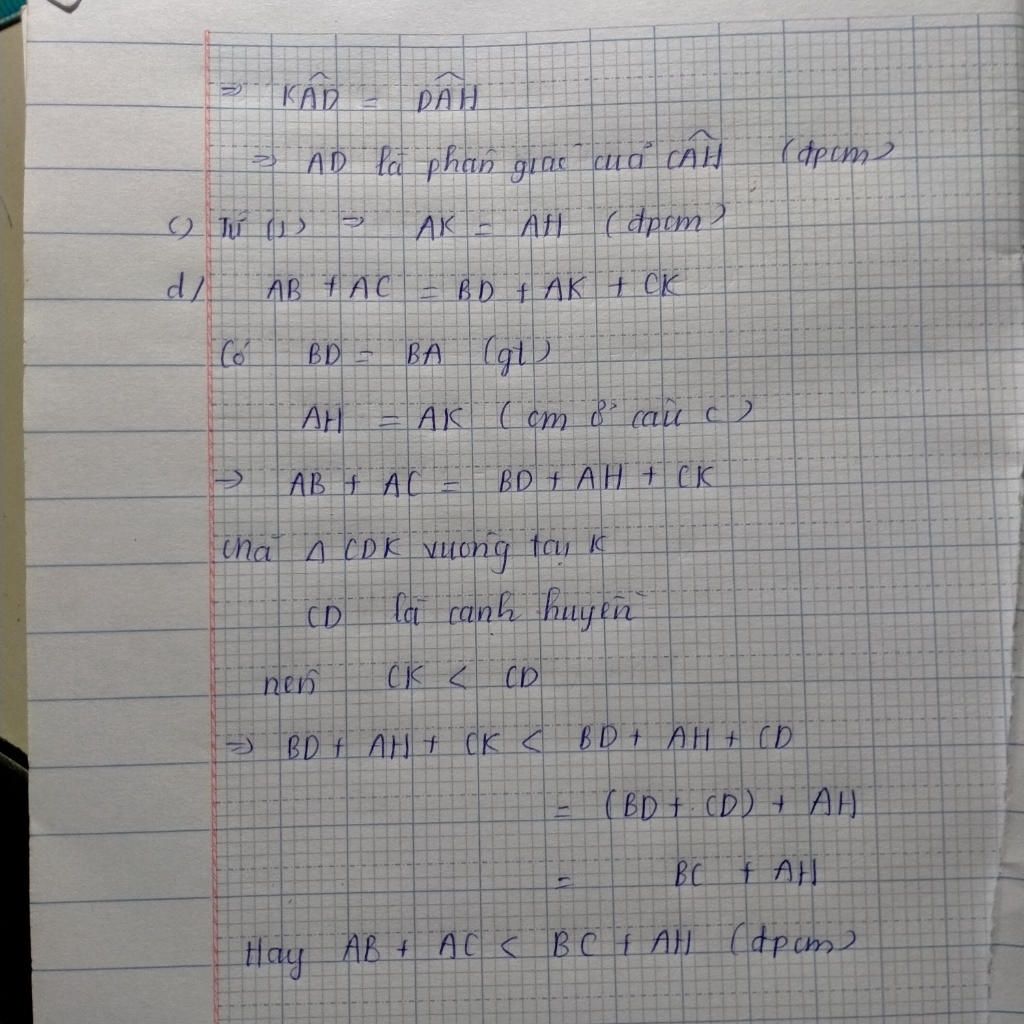 ⇒ KÂD = DÂH
⇒ AD là phân giác của CÂH (đpcm)
c) Từ (1) ⇒ AK = AH (đpcm)
d) AB + AC = BD + AK + CK
Có BD = BA (gt)
AH = AK (cm ở câu c)
⇒ AB + AC = BD + AH + CK
mà Δ CDK vuông tại K
CD là cạnh huyền
nên CK < CD
⇒ BD + AH + CK < BD + AH + CD
= (BD + CD) + AH
= BC + AH
Hay AB + AC < BC + AH (đpcm)